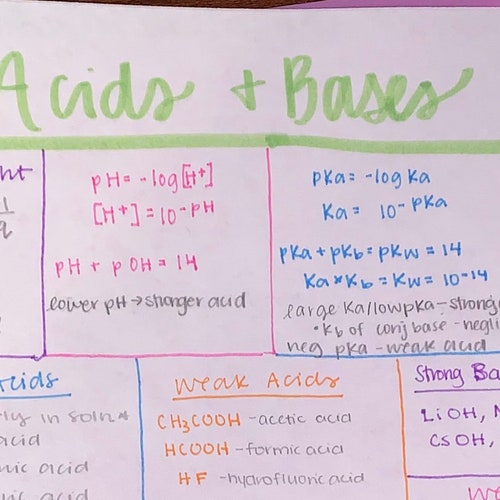 Acids + Bases
pH = -log[H+]
[H+] = 10-pH
pH + pOH = 14
lower pH → stronger acid
pKa = -log Ka
Ka = 10-pKa
pKa + pKb = pKw = 14
Ka * Kb = Kw = 10-14
large Ka/low pKa - strong
• Kb of conj base - negli
neg pKa - weak acid
Weak Acids
CH3COOH - acetic acid
HCOOH - formic acid
HF - hydrofluoric acid
in soln *
acid
acid
acid
Strong Ba
LiOH, N
CSOH,